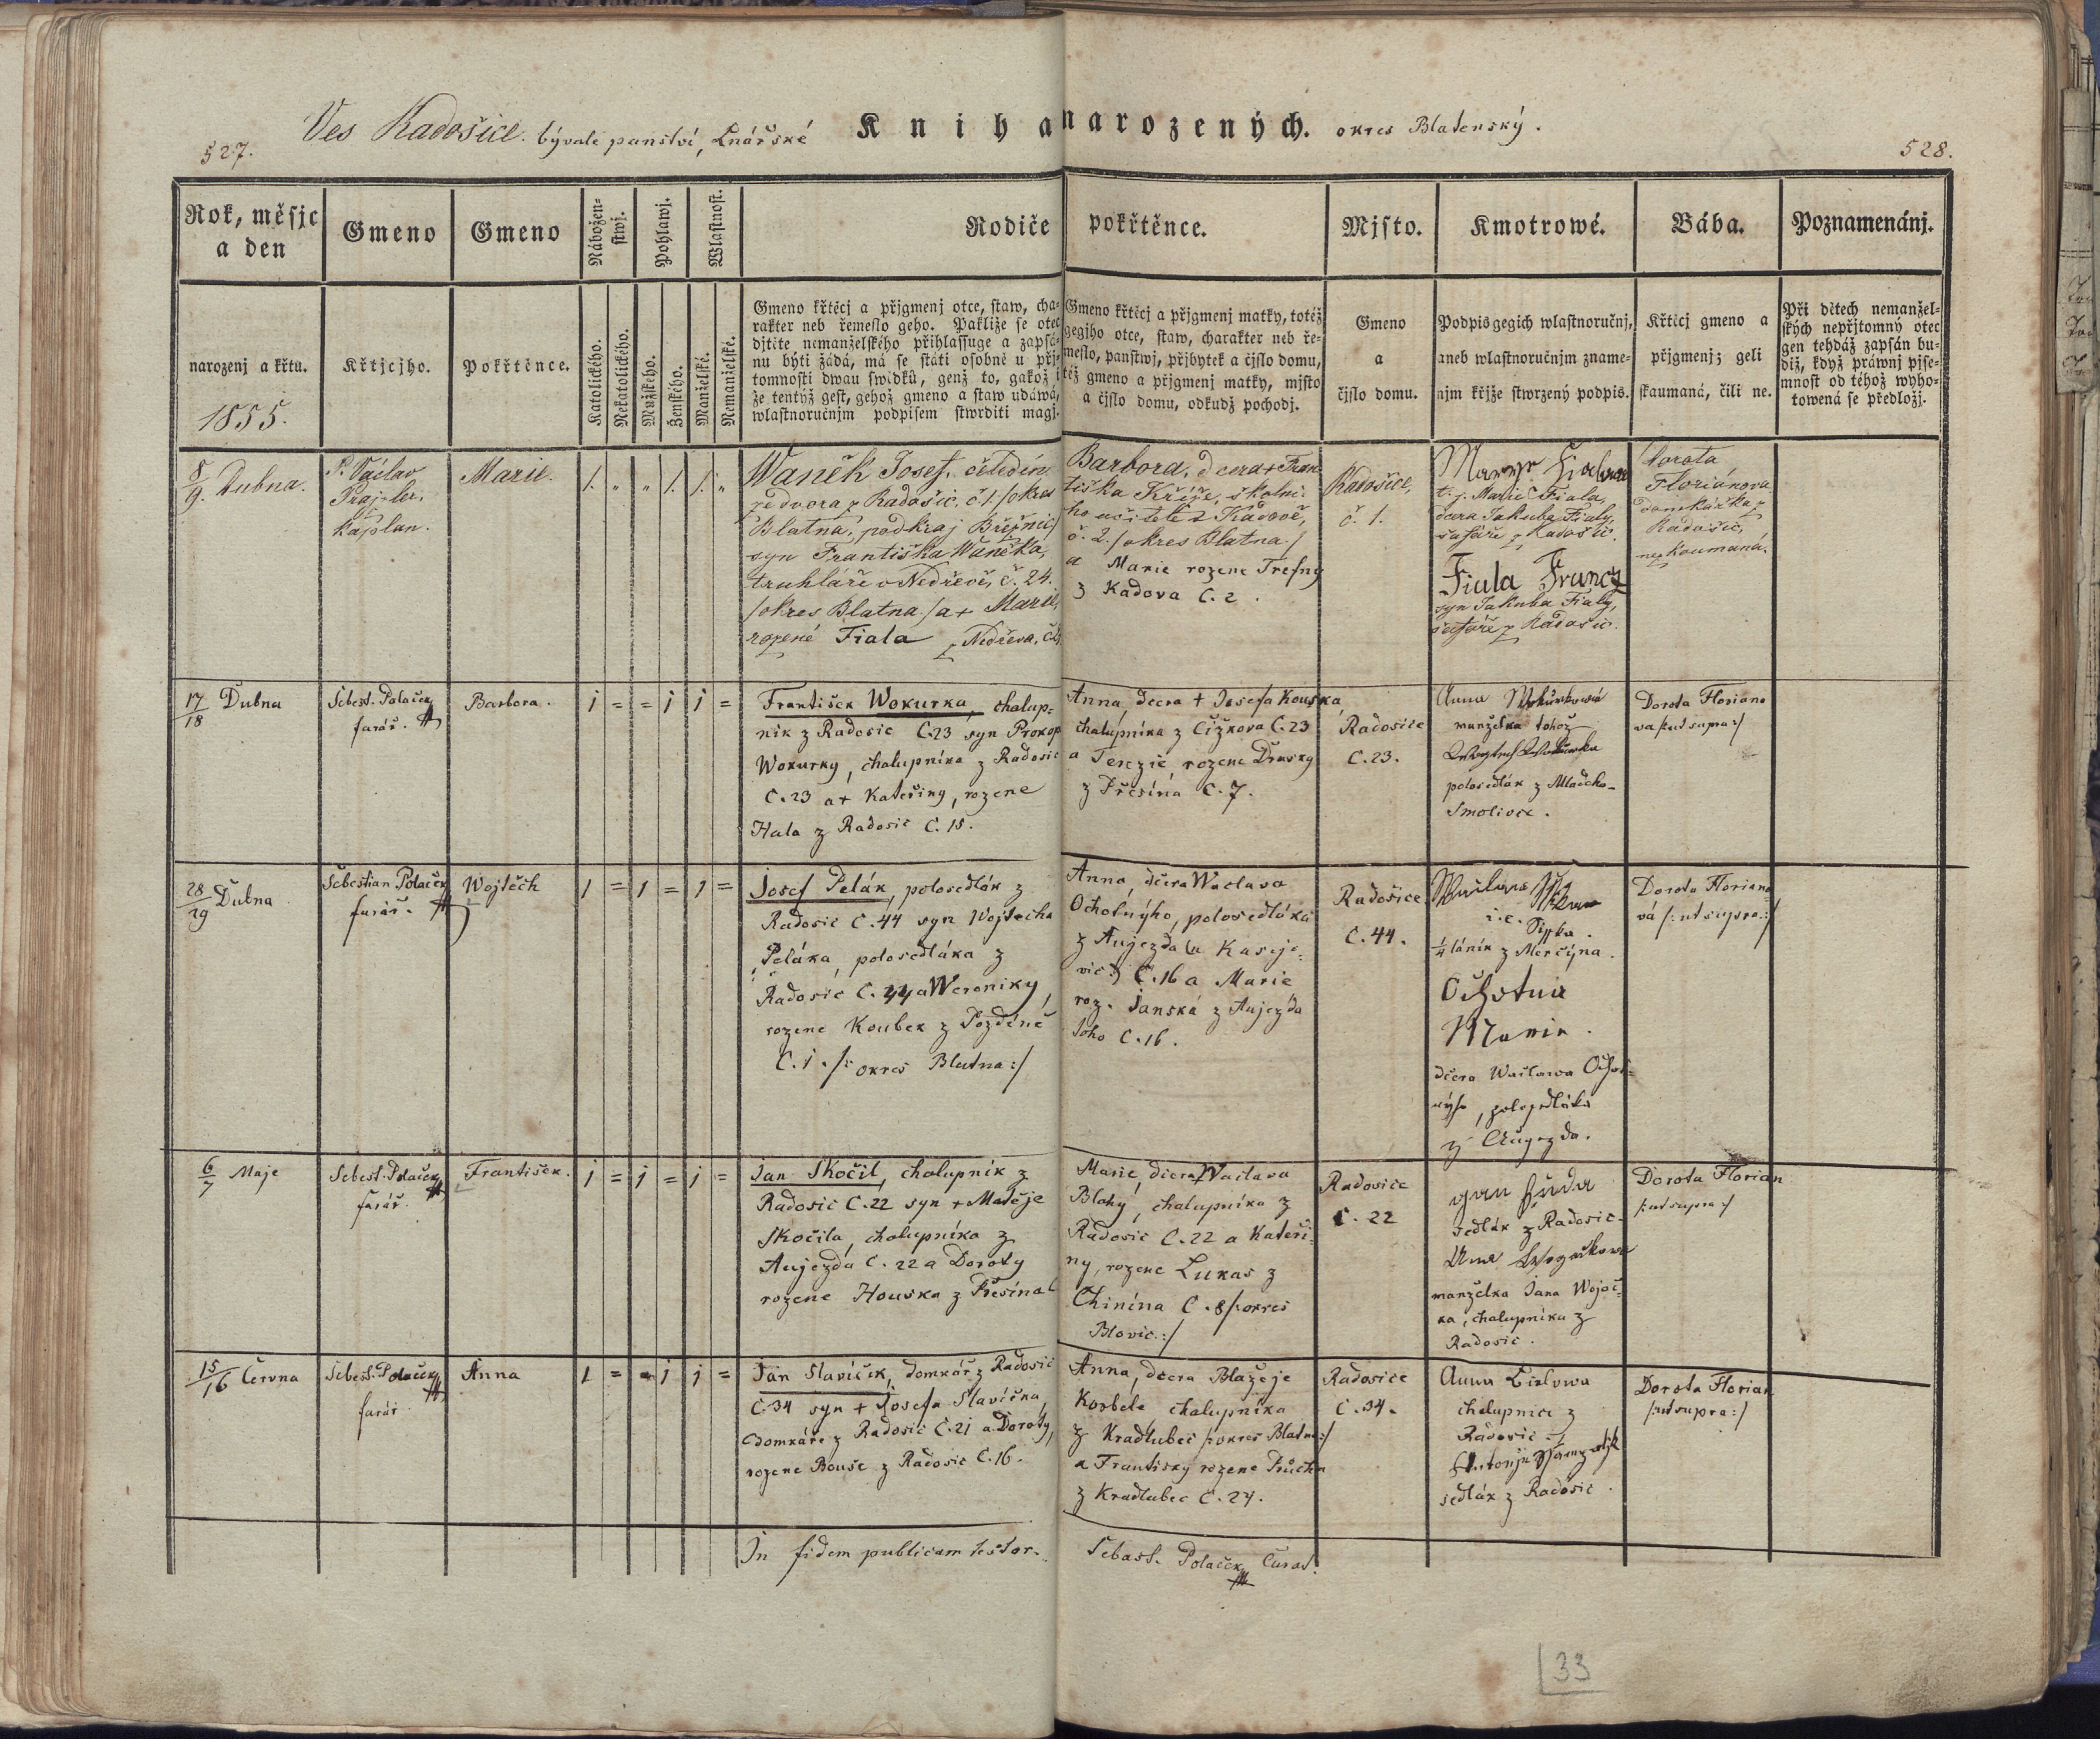 527.
Ves Radošice. bývalé panství, Lnářské
Kniha narozených.
okres Blatenský.
528.
Rok, měsjc
a den
Gmeno
Gmeno
Nábožen-
stwj.
Pohlawj.
Wlastnost.
Rodiče
pokřtěnce.
Mjsto.
Kmotrowé.
Bába.
Poznamenánj.
narozenj a křtu.
1855.
Křtjcjho.
Pokřtěnce.
Katolického.
Nekatolického.
Mužského.
Ženského.
Manželské.
Nemanželské.
Gmeno křtěcj a přjgmenj otce, staw, cha-
rakter neb řemeslo geho. Pakliže se otec
djtěte nemanželského přihlassuge a zapsá-
nu býti žádá, má se státi osobně u přj-
tomnosti dwau swědků, genž to, gakož i
že tentýž gest, gehož gmeno a staw udáwá,
wlastnoručnjm podpisem stwrditi magj.
Gmeno křtěcj a přjgmenj matky, totéž
gegjho otce, staw, charakter neb ře-
meslo, panstwj, přjbytek a čjslo domu,
též gmeno a přjgmenj matky, mjsto
a čjslo domu, odkudž pocházj.
Gmeno
a
čjslo domu.
Podpis gegich wlastnoručnj,
aneb wlastnoručnjm zname-
njm křjže stwrzený podpis.
Křtěcj gmeno a
přjgmenj; geli
skaumaná, čili ne.
Při dětech nemanžel-
ských nepřjtomný otec
gen tehdáž zapsán bu-
diž, když práwnj pjse-
mnost od téhož wyho-
towená se předložj.
8/9. Dubna.
P. Václav
kaplan.
Marie.
1. " " 1. 1. "
Waněk Josef, čeledín
ze dvora z Radošic, č. 1. /okres
Blatna, podkraj Březnic/
syn Františka Waněka,
truhláře v Nedřevě, č. 24.
/okres Blatna./ a + Marie,
rozené Fiala z Nedřeva, č.
Barbora, dcera + Fran-
tiška Kříže, školní-
ho učitele z Kadově,
č. 2. /okres Blatna./
a Marie rozene Trefny
z Kadova C. 2.
Radošice,
č. 1.
t. j. Marie Fiala,
dcera Jakuba Fialy,
šafáře z Radošic.
Fiala Francz
syn Jakuba Fialy,
šafáře z Radošic.
Dorota
Floriánova
domkářka z
Radošic,
nezkoumaná.
17/18 Dubna
Sebest. Polaček
farář.
Barbora.
1 = = 1 1 =
František Wokurka, chalup=
nik z Radosic C.23 syn Prokop
Wokurky, chalupnika z Radosic
C.23 a + Kateřiny, rozene
Hala z Radosic C. 15.
Anna, dcera + Josefa Kouska
chalupnika z Čížkova C.23
a Terezie rozene Drusky
z Přesína C. 7.
Radosice
C.23.
Anna Wokurkowá
manželka tohož
polosedlák z Mladeho-
Smolivce.
Dorota Floriano
va /:ut supra:/
28/29 Dubna
Sebestian Polaček
farář.
Wojtěch
1 = 1 = 1 =
Josef Pelák, polosedlák z
Radosic C.44 syn Wojtecha
Peláka, polosedláka z
Radosic C.44 a Weroniky,
rozene Koubek z Pozdéně
C.1. /: okres Blatna:/
Anna, dcera Waclava
Ochotnýho, polosedláka
z Aujezda (u Kaseje-
vic) C.16 a Marie
roz. Janská z Aujezda
toho C.16.
Radošice
C. 44.
i.e. Sipka.
1/4 láník z Merčýna.
Ochotná
Marie.
dcera Waclawa Ochot-
nýho, polosedláka
z Augezda.
Dorota Floriano
vá /: ut supra:/
6/7 Maje
Sebest. Polaček
farář.
František.
1 = 1 = 1 =
Jan Skočil, chalupník z
Radosic C.22 syn + Matěje
Skočila, chalupníka z
Aujezda C. 22 a Doroty
rozene Houska z Přesína C
Marie, dcera + Waclava
Blahy, chalupníka z
Radosic C.22 a Kateři-
ny, rozene Lukas z
Chinína C. 8 /: okres
Blovic:/
Radosice
C. 22
Jan Hůda
sedlák z Radosic.
manželka Jana Wojač-
ka, chalupníka z
Radosic.
Dorota Florian
/:ut supra:/
15/16 Června
Sebest. Polaček
farář.
Anna
1 = = 1 1 =
Jan Slavíček, domkář z Radosic
C.34 syn + Josefa Slavíčka,
domkáře z Radosic C.21 a Doroty,
rozene Bouše z Radosic C.16.
Anna, dcera Blažeje
Korbela chalupníka
z Kradlubec /:okres Blatna:/
a Frantisky rozene Průcha
z Kradlubec C. 24.
Radosice
C. 34.
chalupnice z
Radosic
sedlák z Radosic.
Dorota Florian
/:ut supra:/
In fidem publicam testor.
Sebast. Polaček Curat.
33